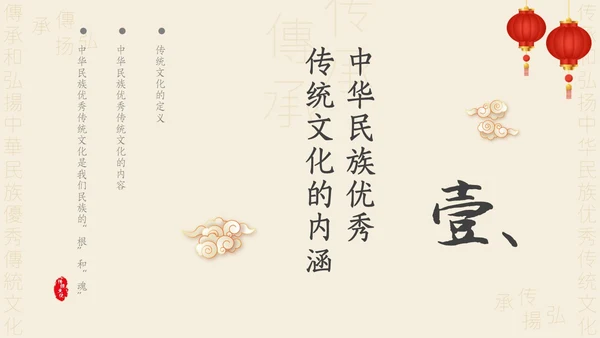 壹、
中华民族优秀
传统文化的内涵
传统文化的定义
中华民族优秀传统文化的内容
中华民族优秀传统文化是我们民族的“根”和“魂”
传承和弘揚中华民族优秀传统文化
傳承和弘揚中華民族優秀傳統文化
传承
傳承
傳承
弘揚
传承
弘揚